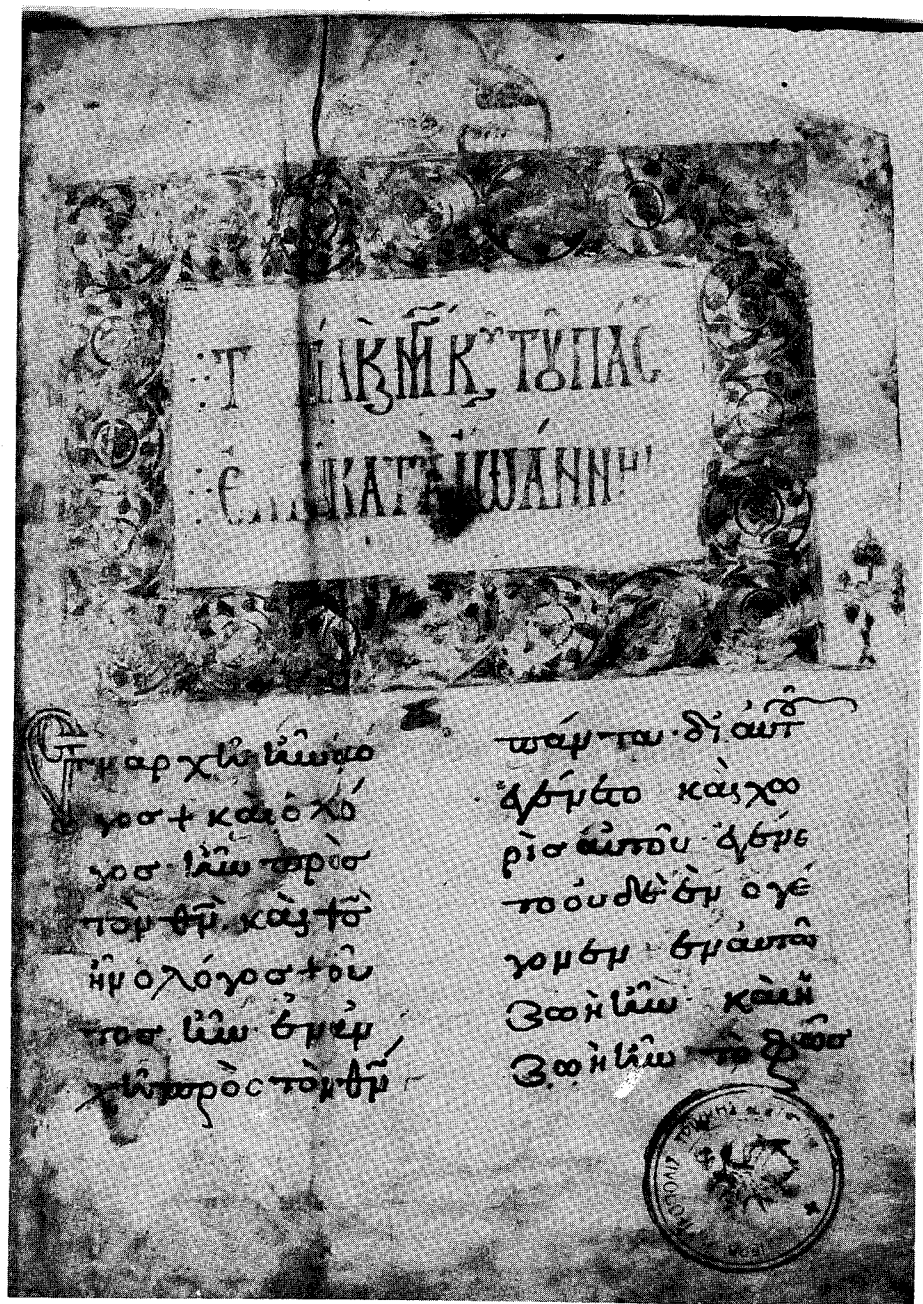 κατὰ Ἰωάννην
Ἐν ἀρχῆ ἦν ὁ λό
γος + καὶ ὁ λό
γος ἦν πρὸς
τὸν θν̅. καὶ θς̅
ἦν ὁ λόγος + οὗ
τος ἦν ἐν ἀρ
χῆ πρὸς τὸν θν̅
πάντα δι αὐτοῦ
ἐγένετο καὶ χω
ρὶς αὐτοῦ ἐγένε
το οὐδὲ ἓν ὃ γέ
γονεν ἐν αὐτῶ
ζωὴ ἦν καὶ ἡ
ζωὴ ἦν τὸ φῶς